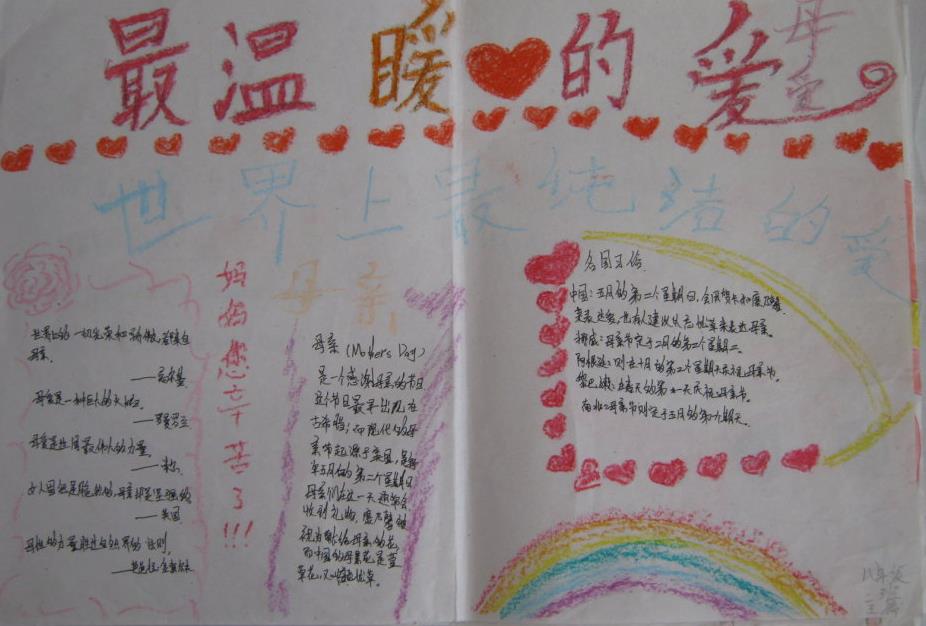 最温暖的爱
母爱
世界上最纯洁的爱
妈妈您辛苦了!!!
母亲
世界上的一切光荣和骄傲,都来自
母亲。
——高尔基
母爱是一种巨大的火焰。
——罗曼罗兰
母爱是世间最伟大的力量。
——米尔
女人固然是脆弱的,母亲却是坚强的
——法国
母性的力量胜过自然界的法则。
母亲 (Mothers Day)
是一个感谢母亲的节日
这个节日最早出现在
古希腊;而现代的母
亲节起源于美国,是每
年五月的第二个星期日
母亲们在这一天通常会
收到礼物,康乃馨被
视为献给母亲的花,
而中国的母亲花是萱
草花,又叫忘忧草。
各国习俗
中国:五月的第二个星期日,会用贺卡和康乃馨
来表达爱,也有人建议以忘忧草来表达母亲。
挪威:母亲节定于二月的第二个星期二。
阿根廷:则在十月的第二个星期天庆祝母亲节。
黎巴嫩:在春天的第一天庆祝母亲节。
南非:母亲节则定于五月的第一个星期天。